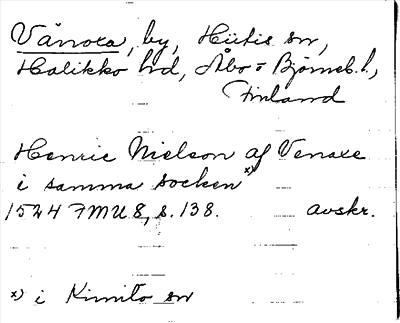 Vånoxa, by, Hiitis sn,
Halikko hd, Åbo o Björneb. l.,
Finland
Henric Nielson af Venaxe
i samma socken x)
1524 FMU 8, s. 138. avskr.
x) i Kimito sn